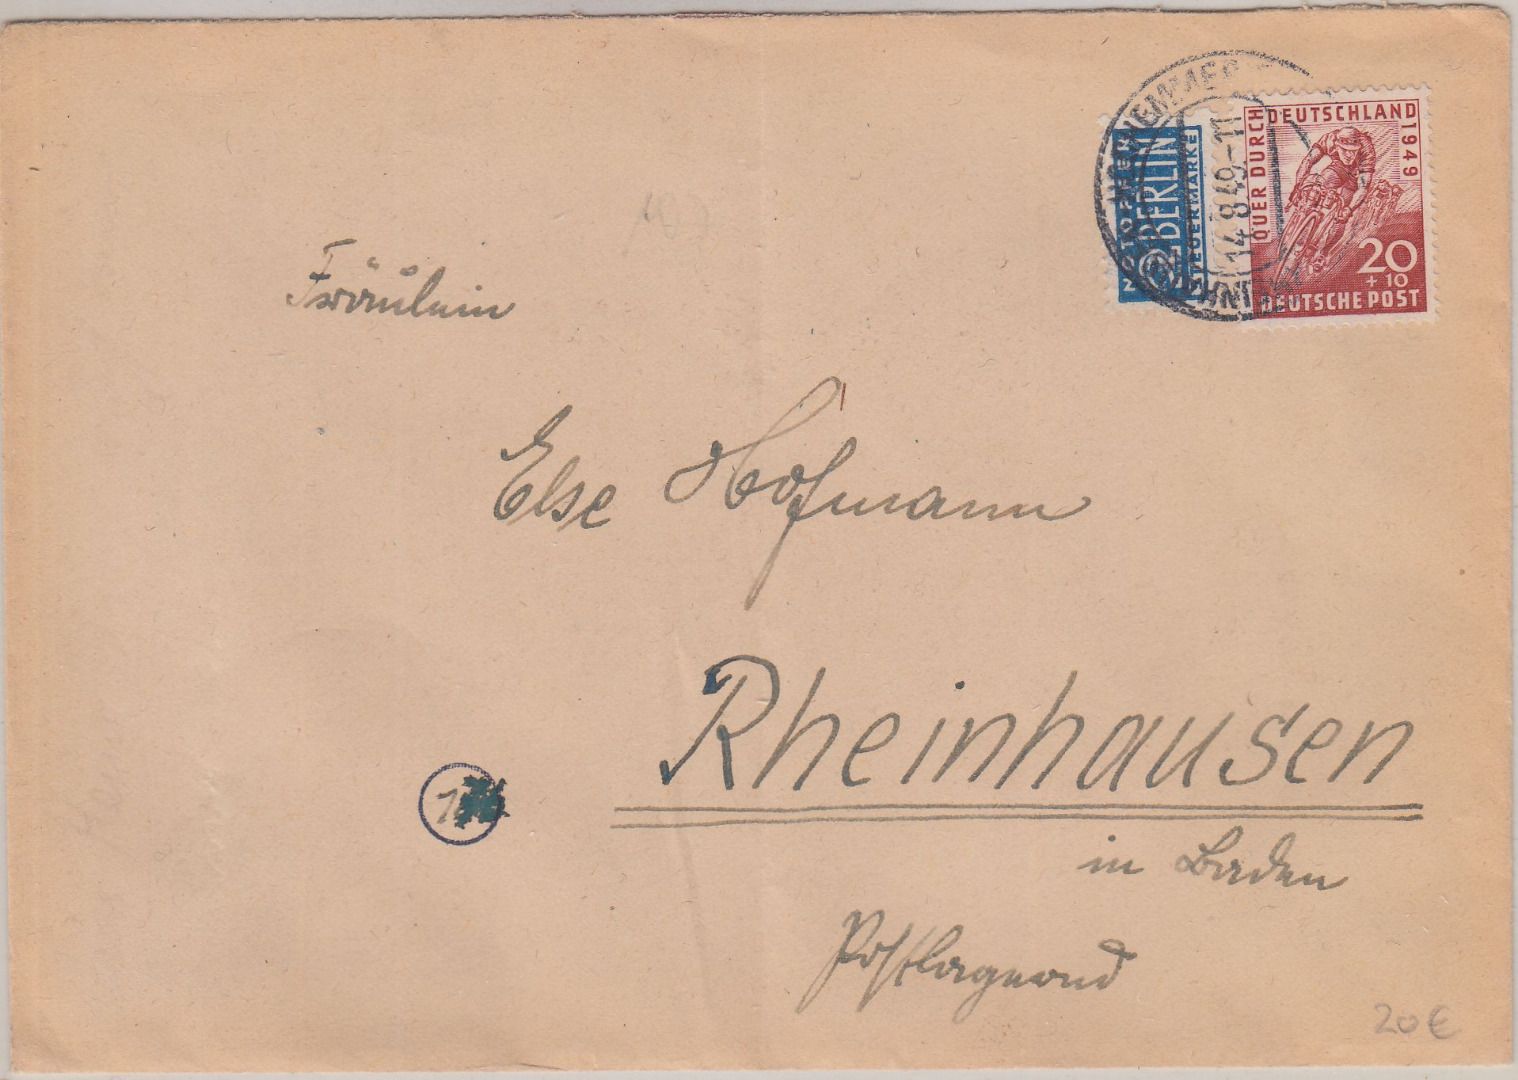 NOTOPFER
2 BERLIN
STEUERMARKE
14.8.49.-11
QUER DURCH
DEUTSCHLAND
1949
20
+ 10
DEUTSCHE POST
Fräulein
Else Hofmann
Rheinhausen
in Baden
Postlagernd
20 €